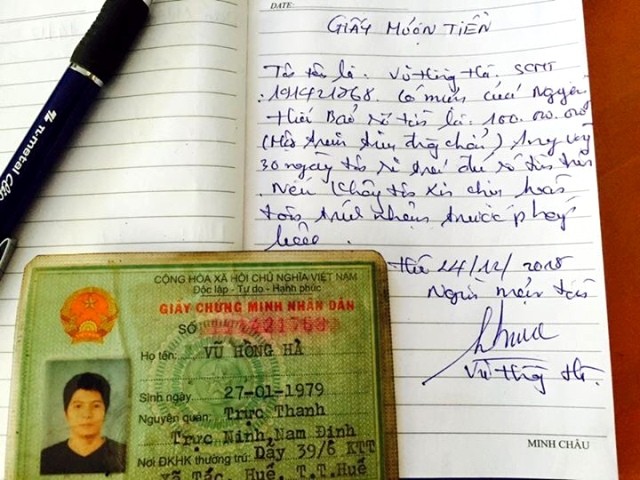 DATE:
GIẤY MƯỢN TIỀN
Tôi tên là. Vũ Hồng Hà. SCMT
191421768. Có mượn của Nguyễn
Bảo số tiền là. 100.000.000
(Một trăm triệu đồng chẵn) Trong vòng
30 ngày tôi sẽ trả đủ số tiền trên
Nếu không tôi xin chịu hoàn
toàn trách nhiệm trước pháp
luật.
Huế 24/12/2018
Người mượn tiền
Vũ Hồng Hà.
MINH CHÂU
n-metal
CỘNG HÒA XÃ HỘI CHỦ NGHĨA VIỆT NAM
Độc lập - Tự do - Hạnh phúc
GIẤY CHỨNG MINH NHÂN DÂN
SỐ
Họ tên: VŨ HỒNG HÀ
Sinh ngày 27-01-1979
Nguyên quán: Trực Thanh
Trực Ninh, Nam Định
Nơi ĐKHK thường trú: Dãy 39/6 KTT
Xã Tắc, Huế, T.T.Huế